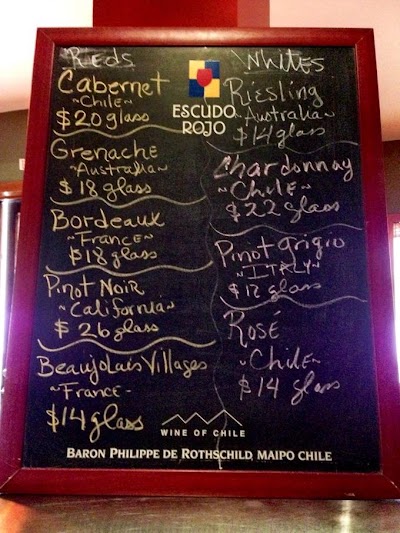 Reds
Cabernet
~Chile~
$20 glass
Grenache
~Australia~
$18 glass
Bordeaux
~France~
$18 glass
Pinot Noir
~California~
$26 glass
Beaujolais Villages
~France~
$14 glass
ESCUDO
ROJO
Whites
Riesling
~Australia~
$14 glass
Chardonnay
~Chile~
$22 glass
Pinot Grigio
~ITALY~
$12 glass
Rosé
~Chile~
$14 glass
WINE OF CHILE
BARON PHILIPPE DE ROTHSCHILD, MAIPO CHILE